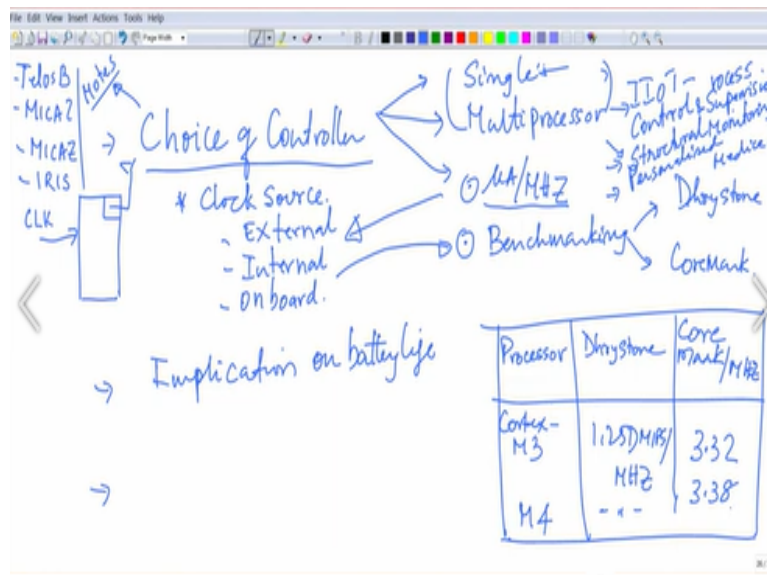 File Edit View Insert Actions Tools Help
Page Width
-TelosB
-MICA2
-MICAZ
-IRIS
Motes
CLK
→ Choice of Controller
* Clock Source.
- External
- Internal
- Onboard.
Single
Multiprocessor
→ IIOT - Process
Control & Supervision
→ Structural Monitoring
→ Personalised Medice
μA/MHZ
Benchmarking
Dhrystone
CoreMark
→ Implication on battery life
→
Processor Dhrystone Core Mark/MHZ
Cortex-M3 1.25DMIPS/MHZ 3.32
M4 -"- 3.38